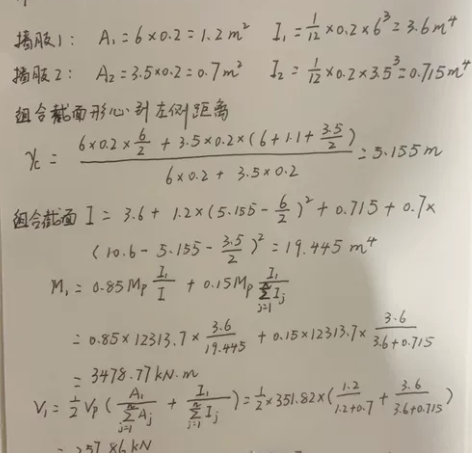 墙肢1: A₁=6×0.2=1.2m² I₁=1/12×0.2×6³=3.6m⁴
墙肢2: A₂=3.5×0.2=0.7m² I₂=1/12×0.2×3.5³=0.715m⁴
组合截面形心到左侧距离
y_c = (6×0.2×6/2 + 3.5×0.2×(6+1.1+3.5/2)) / (6×0.2+3.5×0.2) = 5.155m
组合截面 I = 3.6+1.2×(5.155-6/2)²+0.715+0.7×
(10.6-5.155-3.5/2)²=19.445m⁴
M₁=0.85M_p I₁/I + 0.15M_p I₁/Σ_{j=1}^{2}I_j
=0.85×12313.7×3.6/19.445 + 0.15×12313.7×3.6/(3.6+0.715)
=3478.77kN.m
V₁=1/2 V_p(A₁/Σ_{j=1}^{2}A_j + I₁/Σ_{j=1}^{2}I_j)=1/2×351.82×(1.2/(1.2+0.7)+3.6/(3.6+0.715))
=257.86kN